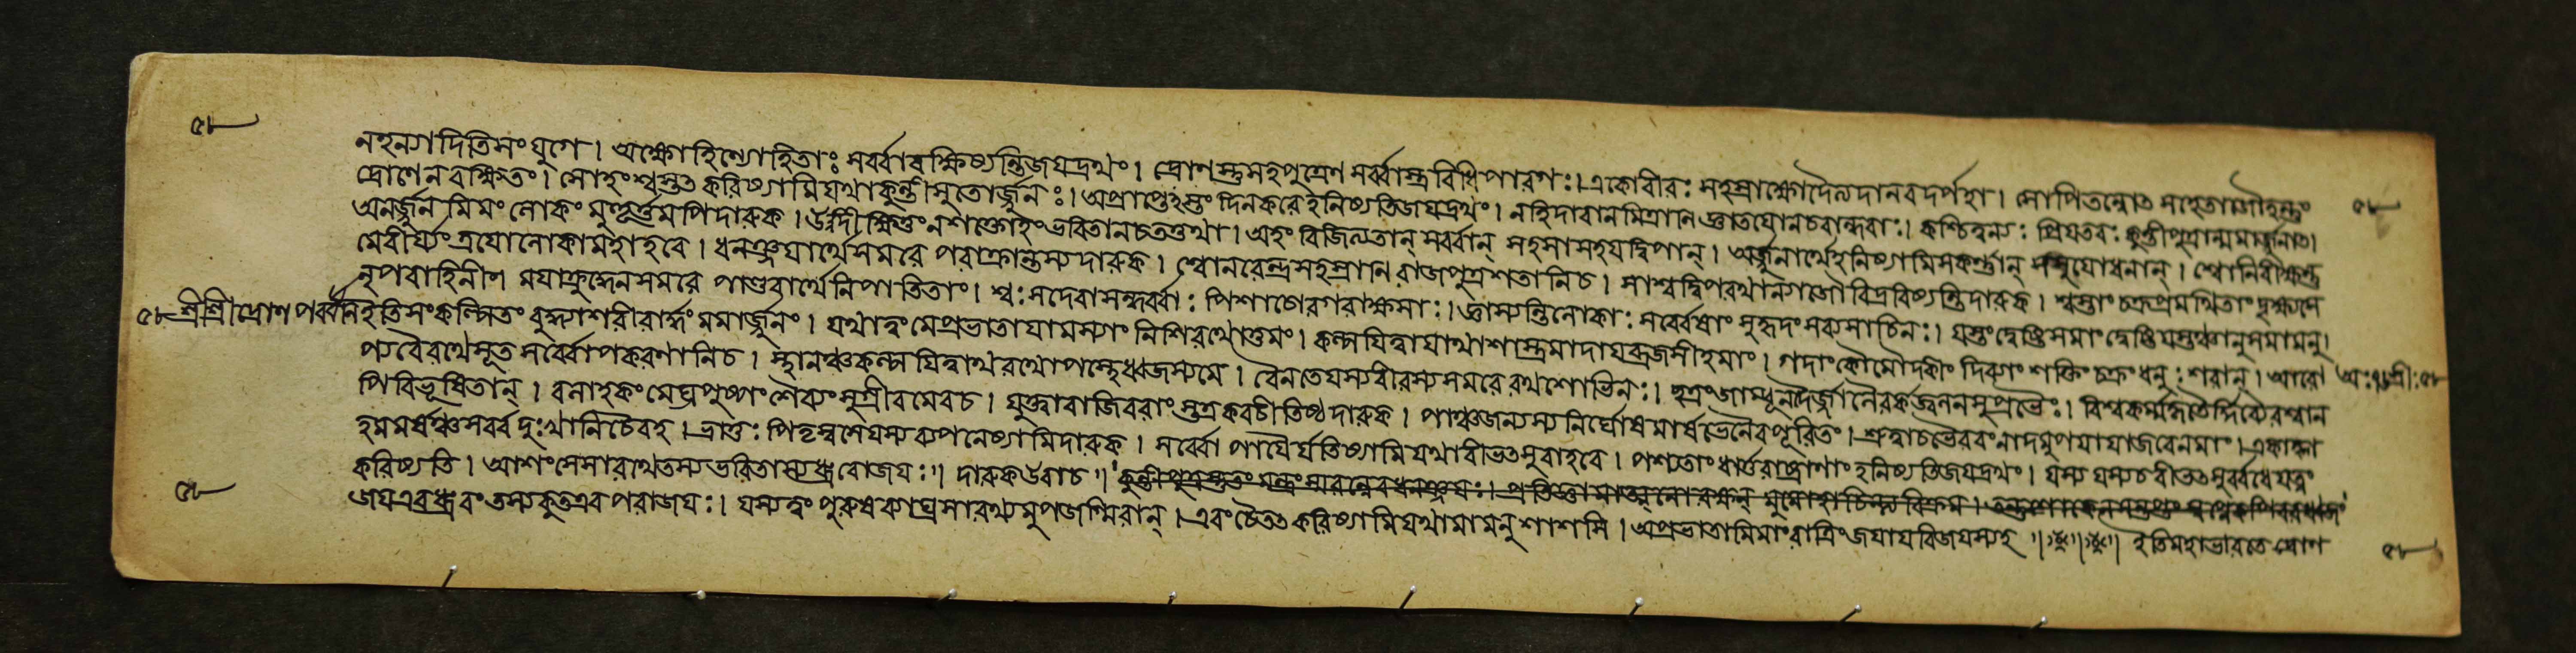 ৫৮
নহন্যাদিতিসংযুগে। অক্ষৌহিণ্যোহিতাঃ সর্ব্বাবক্ষিষ্যন্তিজযদ্রথং। দ্রোণস্তুসহপুত্রেণ সর্ব্বাস্ত্রবিধিপারগঃ। একোবীরঃ সহস্রাক্ষোদৈত্যদানবদর্পহা। সোপিতন্নোৎসহেতাজৌহন্তুং
দ্রোণেনবক্ষিতং। সোহংশ্বস্তৎকরিষ্যামিযথাকুন্তীসুতোর্জ্জুনঃ। অপ্রাপ্তেহস্তংদিনকরেহনিষ্যতিজযদ্রথং। নহিদাবানমিত্রানিজ্ঞাতযোনচবান্ধবাঃ। কশ্চিদন্যঃ প্রিযতবঃ কুন্তীপুত্রান্মমার্জ্জুনাৎ। ৫৮
অনর্জ্জুনমিমংলোকং মুহূর্ত্তমপিদারুক। উদীক্ষিতুংনশক্তোহংভবিতানচতত্তথা। অহং বিজিত্যতান্ সর্ব্বান্ সহসাসহযদ্বিপান্। অর্জ্জুনার্থেহনিষ্যামিসকর্ণ্ণান্ সসুযোধনান্। শ্বোনিবীক্ষন্তু
মেবীর্য্যংত্রযোলোকামহাহবে। ধনঞ্জযার্থেসমরে পরাক্রান্তস্যদারুক। শ্বোনরেন্দ্রসহস্রানি রাজপুত্রশতানিচ। সাশ্বদ্বিপরথান্যাজৌবিদ্রবিষ্যন্তিদারুক। শ্বস্তাংচক্রপ্রমথিতাংদ্রক্ষ্যসে
নৃপবাহিনীং মযাক্রুদ্ধেনসমরে পাণ্ডবার্থেনিপাতিতাং। শ্বঃসদেবাসগন্ধর্ব্বাঃ পিশাচোরগরাক্ষসাঃ। জ্ঞাস্যন্তিলোকাঃ সর্ব্বেষাং সুহৃদংসব্যসাচিনঃ। যস্তংদ্বেষ্টিসমাংদ্বেষ্টিযস্তঞ্চানুসমামনু।
৫৮ শ্রীশ্রীদ্রোণপর্ব্বনি ইতিসংকল্পিতংবুদ্ধ্যাশরীরার্দ্ধং মমার্জ্জুনং। যথাত্বংমেপ্রভাতাযামস্যাং নিশিরথোত্তমং। কল্পযিত্বাযাথাশাস্ত্রমাদাযব্রজসীহমাং। গদাংকৌমোদকীং দিব্যাং শক্তিং চক্রংধনুঃ শরান্। আরো
প্যবৈরথেসূত সর্ব্বোপকরণানিচ। স্থানঞ্চকল্পযিত্বাথরথোপস্থেধ্বজস্যমে। বৈনতেযস্যবীরস্যসমরেরথশোভিনঃ। ছত্রংজাম্বূনদৈর্জ্জালৈরর্কজ্বলনসুপ্রভৈঃ। বিশ্বকর্ম্মকৃতৈর্দ্দিব্যৈরশ্বান
পিবিভূষিতান্। বলাহকং মেঘপুষ্পংশৈব্যংসুগ্রীবমেবচ। যুক্তাবাজিবরাংস্তত্রকবচীতিষ্ঠদারুক। পাঞ্চজন্যস্যনির্ঘোষমার্ষভেনৈবপূরিতং। শ্রুত্বাচভৈরবংনাদমুপযাযাজবেনমাং। একাহ্না
হমমর্ষঞ্চসর্ব্বদুঃখানিচৈবহ। ভ্রাতুঃ পিতৃষ্বসেযস্যব্যপনেষ্যামিদারুক। সর্ব্বোপাযৈর্যতিষ্যামিযথাবীভৎসুবাহবে। পশ্যতাংধার্ত্তরাষ্ট্রাণাংহনিষ্যতিজযদ্রথং। যস্যযস্যচবীভৎসুর্বধেযত্নং
করিষ্যতি। আশংসেসারথেতস্যভবিতাস্যধ্রুবোজযঃ॥ দারুকউবাচ॥
জযএবধ্রুবংতস্যকুতএবপরাজযঃ। যস্যত্বংপুরুষব্যাঘ্রসারথ্যমুপজগ্মিবান্। এবংচৈতৎকরিষ্যামিযথামামনুশাশসি। সুপ্রভাতামিমাংরাত্রিংজযাযবিজযস্যহ॥ ইতিমহাভারতে দ্রোণ
৫৮
৫৮